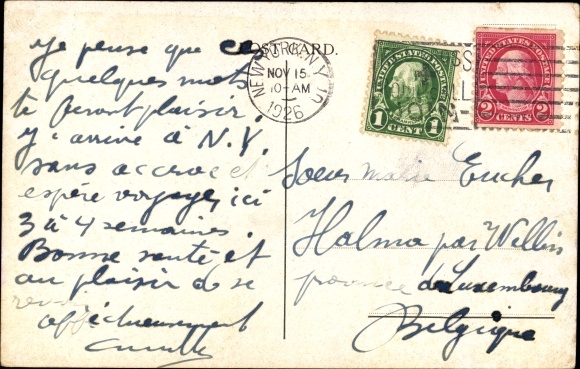 POSTCARD.
NEW YORK, N.Y.
NOV 15
10-AM
1926
UNITED STATES POSTAGE
1 CENT 1
UNITED STATES POSTAGE
2 CENTS 2
Je pense que ces
quelques mots
te feront plaisir.
J'arrive à N.Y.
sans accroc et
espère voyager ici
3 à 4 semaines.
Bonne santé et
au plaisir de se
revoir
affectueusement
Soeur Marie Eucher
Halma par Wellin
province de Luxembourg
Belgique